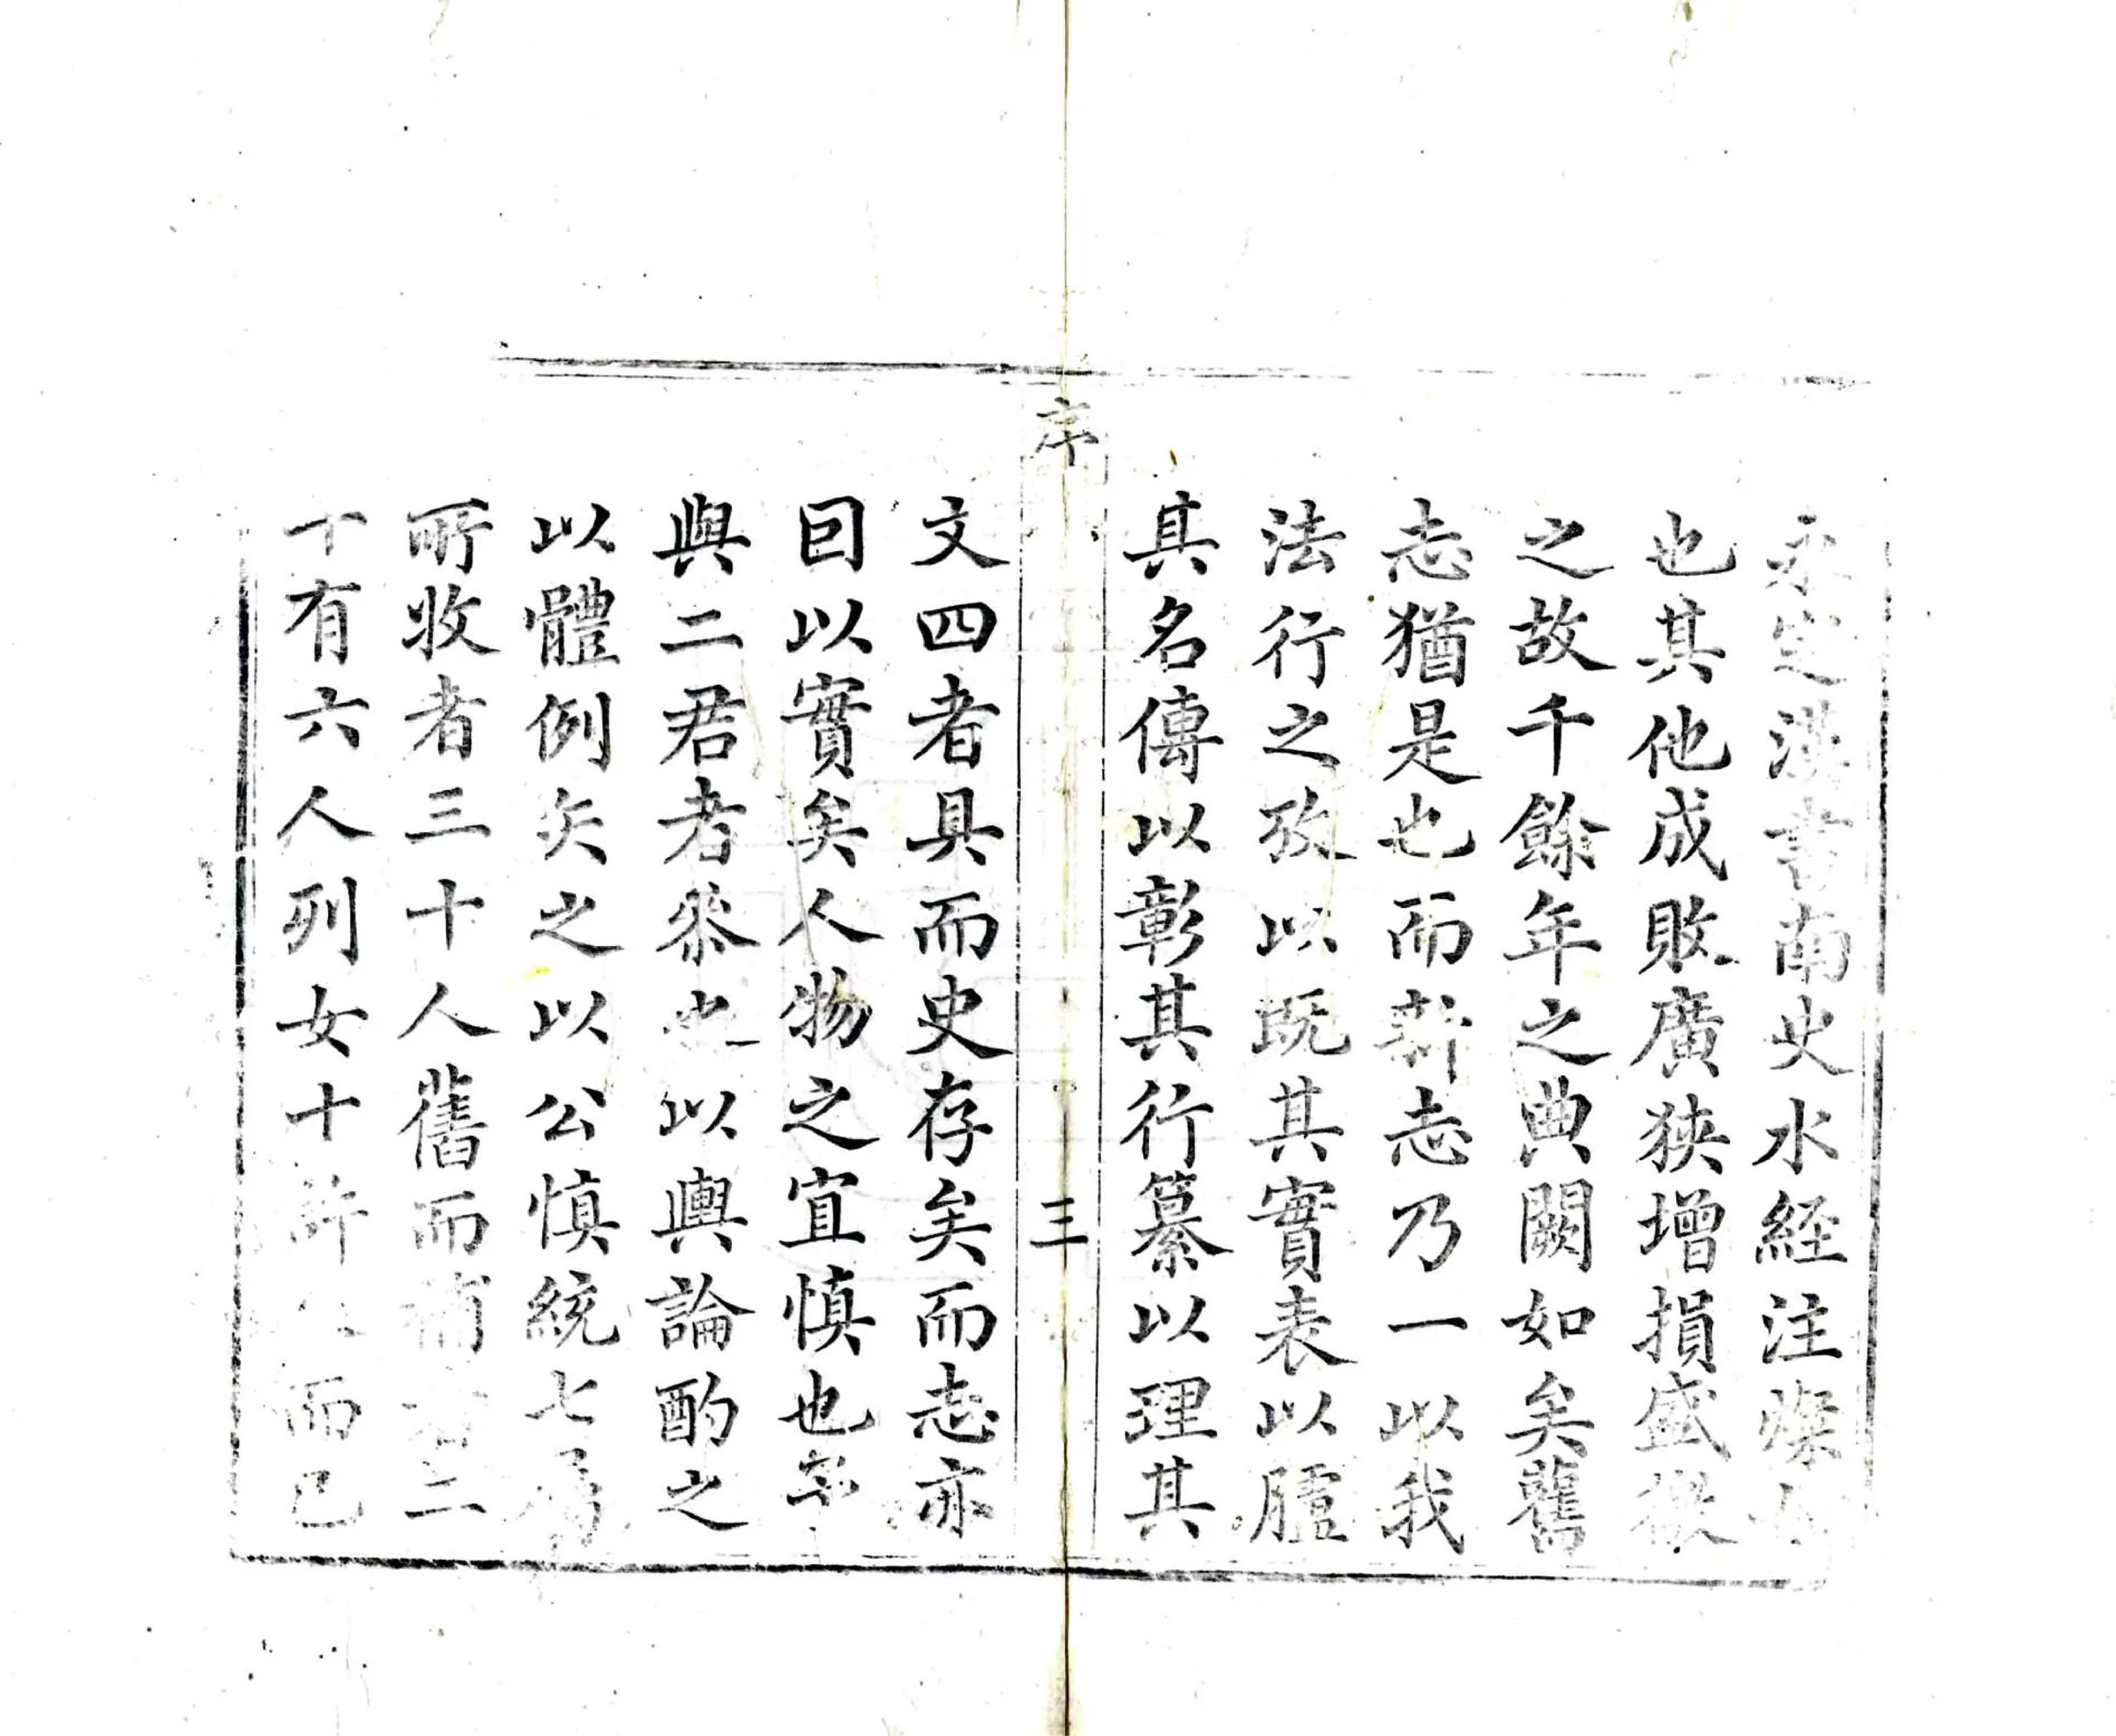 永定漢書南史水經注燦
也其他成敗廣狹增損盛微
之故千餘年之典闕如矣舊
志猶是也而新志乃一以我
法行之攷以既其實表以臚
其名傳以彰其行纂以理其
序
三
文四者具而史存矣而志亦
囙以實矣人物之宜慎也
與二君考叅也以輿論酌之
以體例矢之以公慎統七
所收者三十人舊而補二
十有六人列女十許人而已